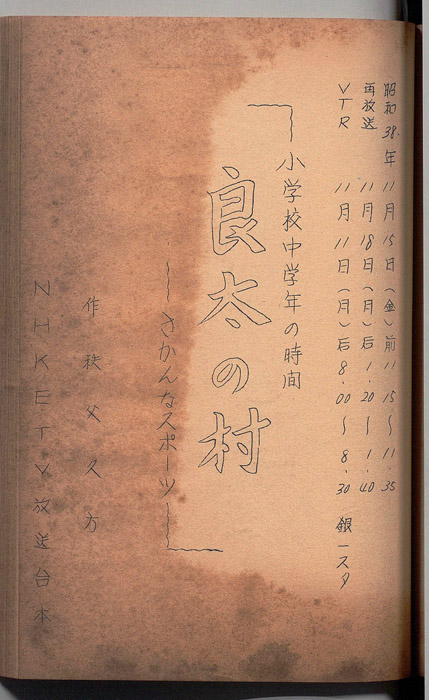 昭和38年 11月15日(金)前 11.15〜11.35
再放送 11月18日(月)后 1.20〜1.40
VTR 11月11日(月)后 8.00〜8.30 銀一スタ
小学校中学年の時間
「良太の村
―さかんなスポーツ―」
作 秩父久方
NHKETV放送台本